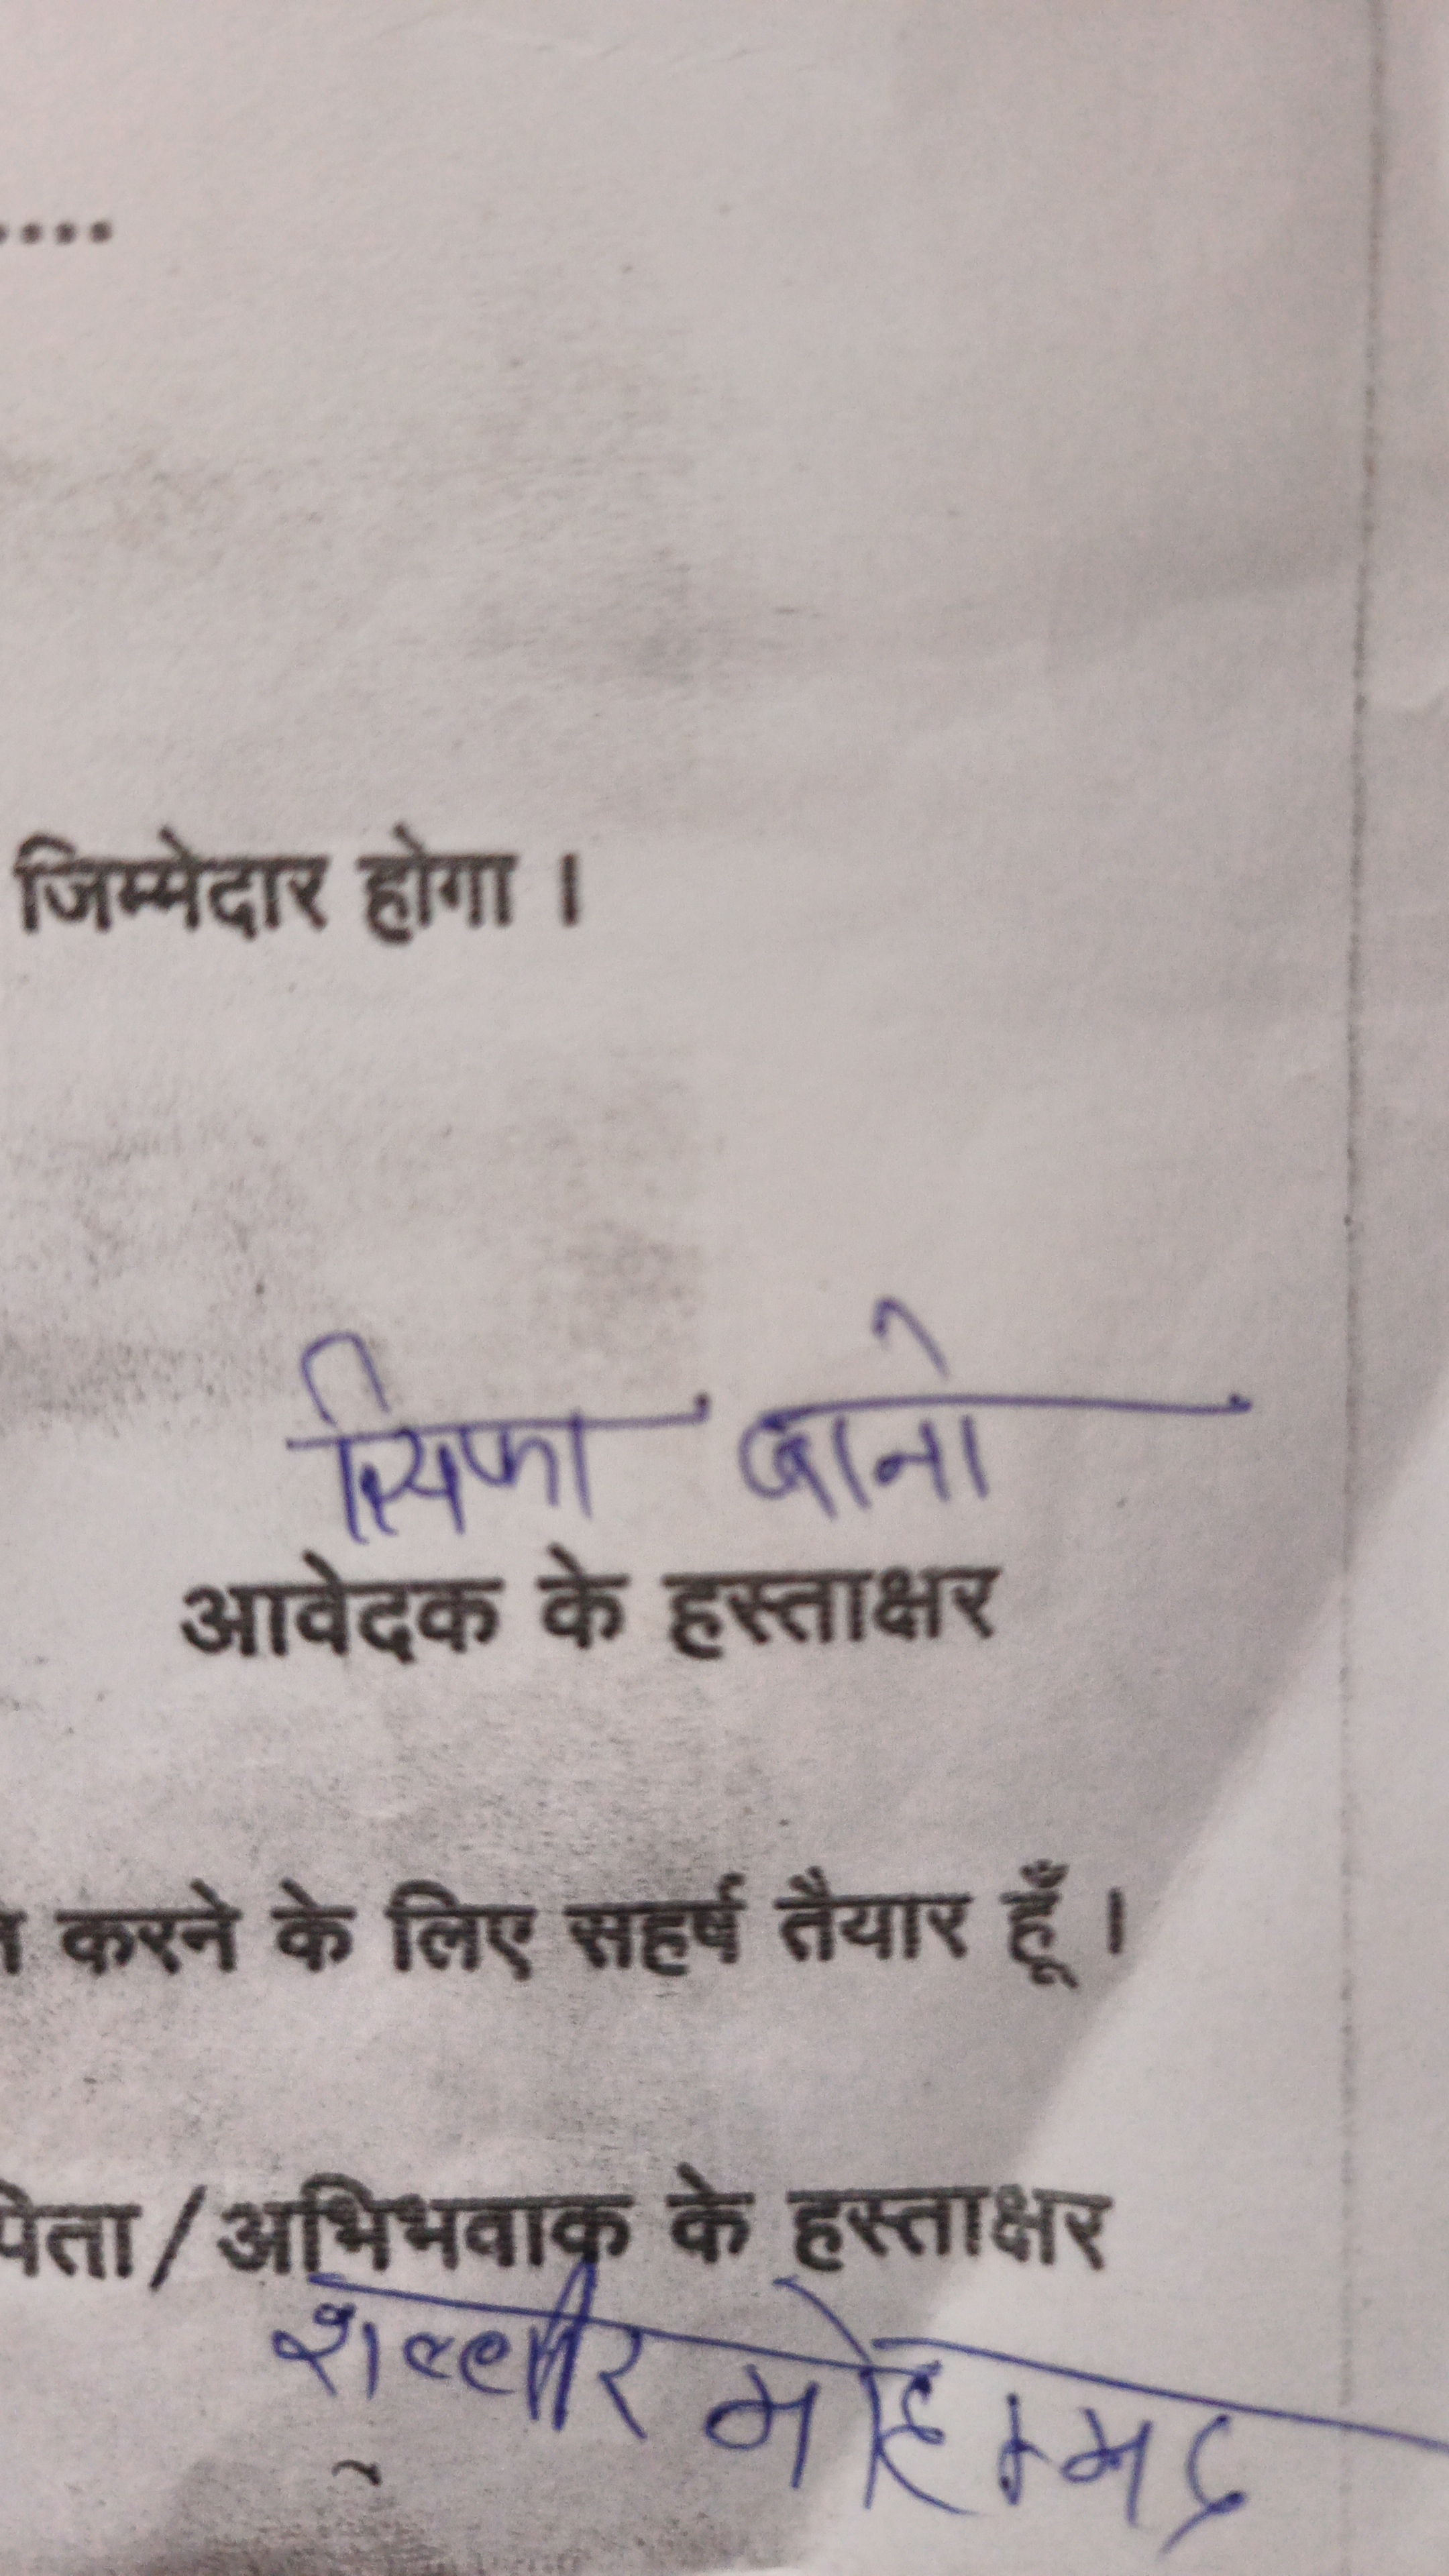 ....
जिम्मेदार होगा ।
सिफा बानो
आवेदक के हस्ताक्षर
करने के लिए सहर्ष तैयार हूँ ।
पिता / अभिभवाक के हस्ताक्षर
शब्बीर मोहम्मद